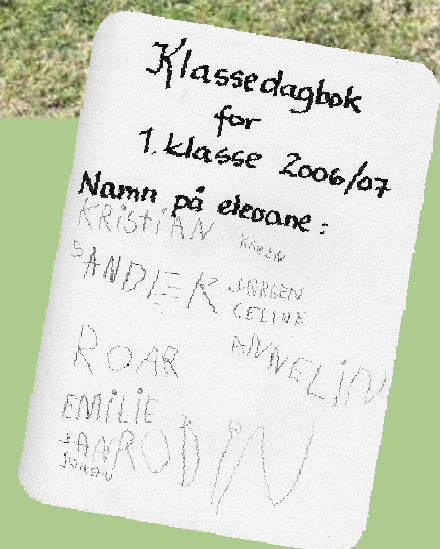 Klassedagbok
for
1. klasse 2006/07
Namn på elevane:
KRISTIAN KAREN
SANDER JØRGEN
CELINE
ANNELIN
ROAR
EMILIE
JAN ROBIN
JOHAN